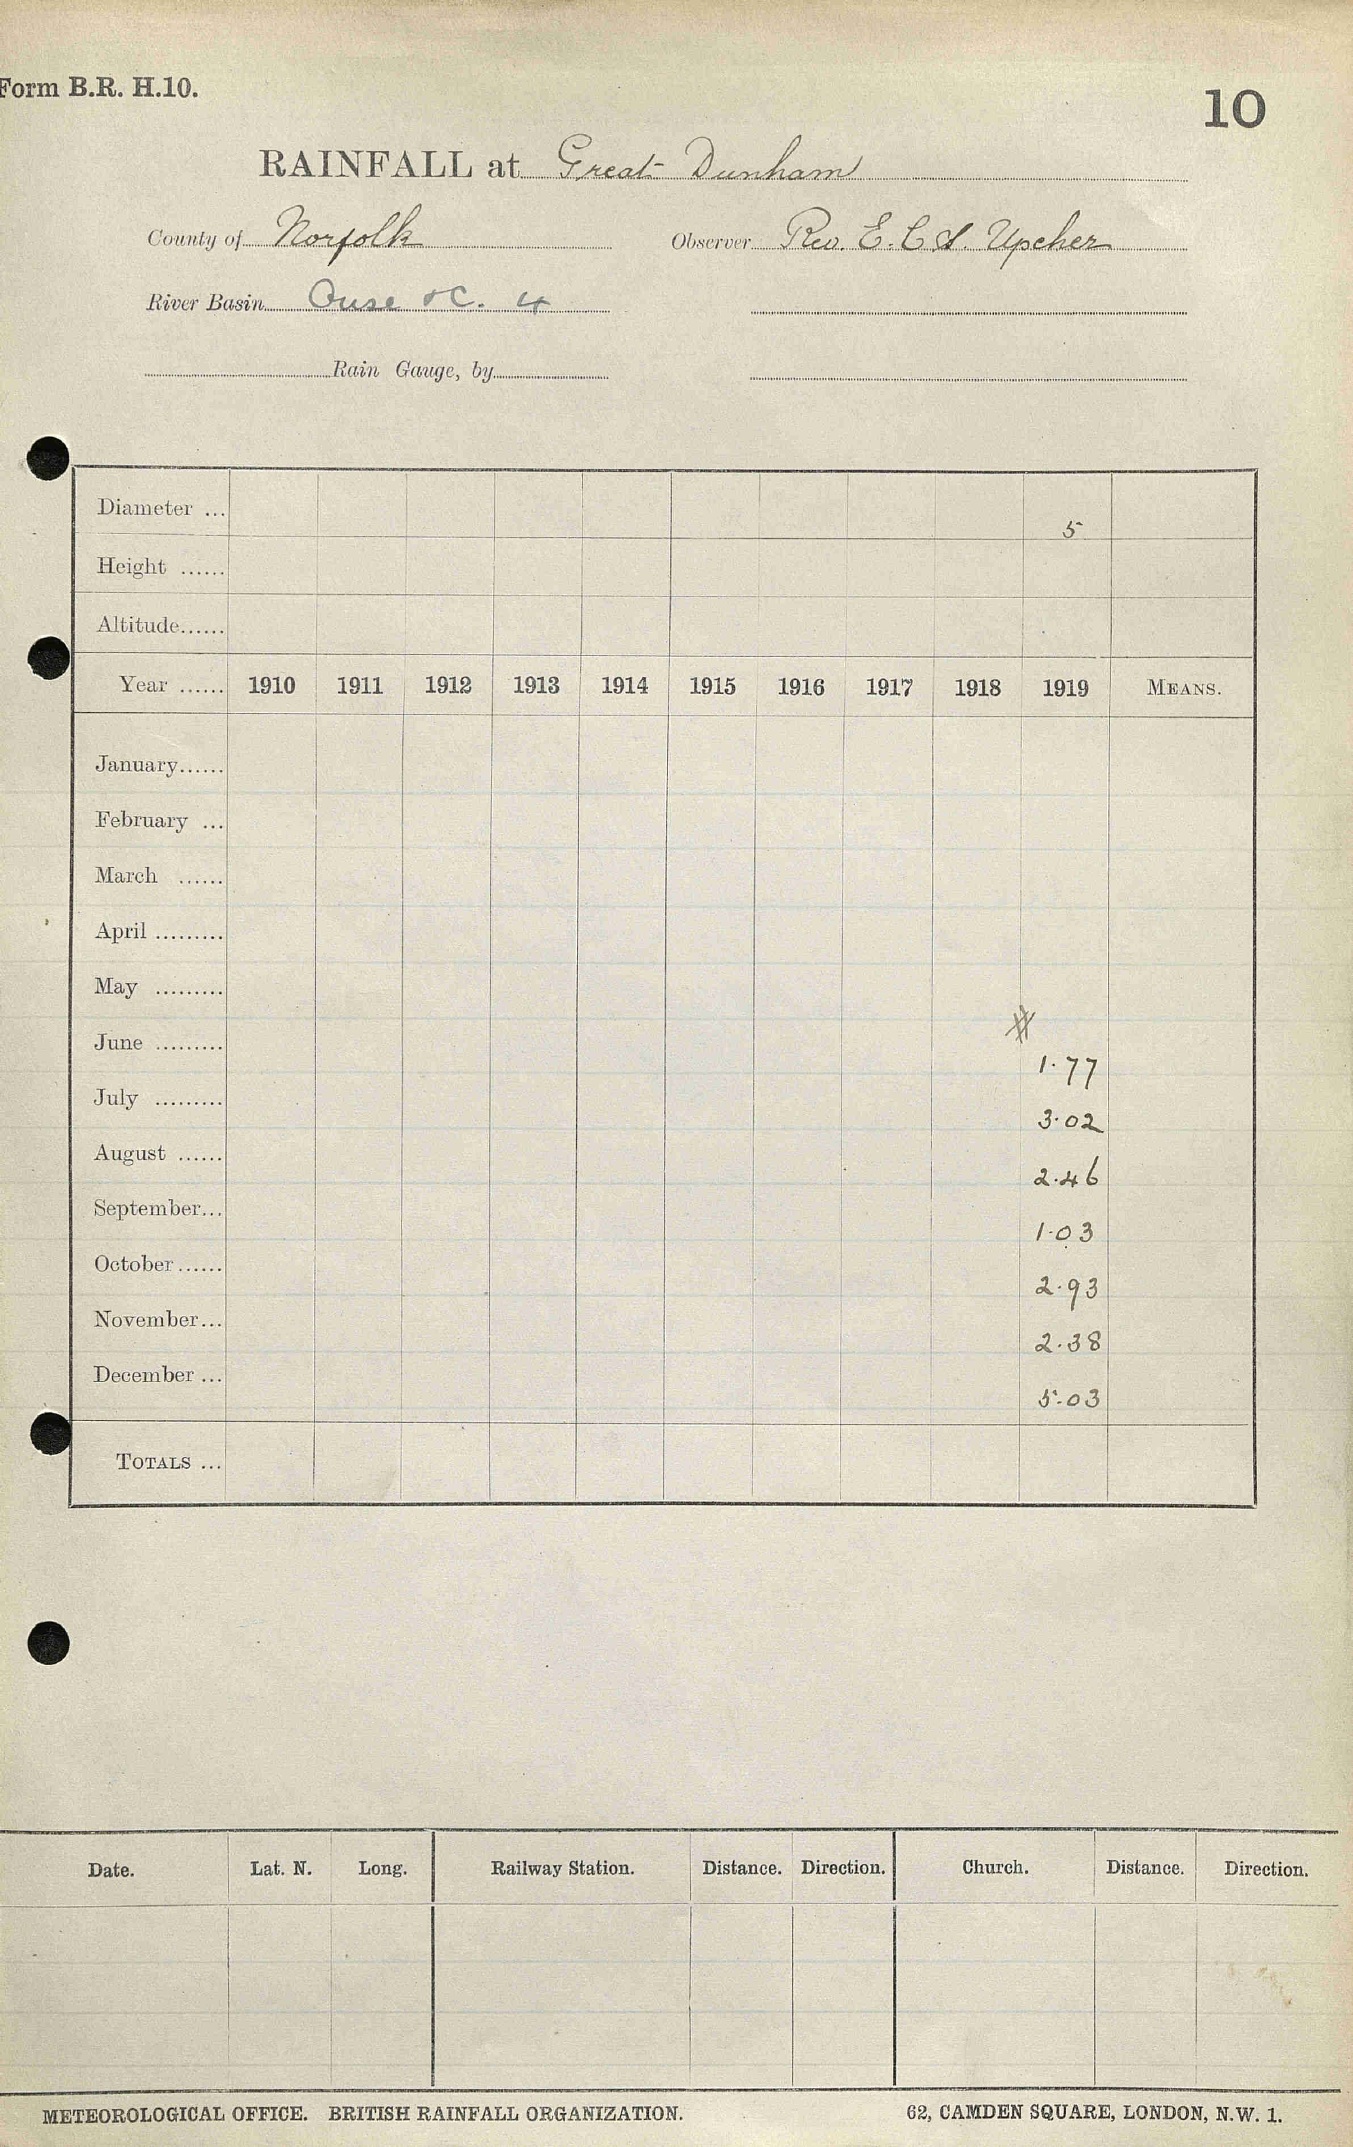 Form B.R. H.10.
10
RAINFALL at Great Dunham
County of Norfolk Observer Rev. E. C. S. Upcher
River Basin Ouse &c. 4
Rain Gauge, by
Diameter ... 5
Height ......
Altitude......
Year ...... 1910 1911 1912 1913 1914 1915 1916 1917 1918 1919 MEANS.
January......
February ...
March ......
April .........
May .........
#
June ......... 1.77
July ......... 3.02
August ...... 2.46
September... 1.03
October ...... 2.93
November... 2.38
December ... 5.03
TOTALS ...
Date. Lat. N. Long. Railway Station. Distance. Direction. Church. Distance. Direction.
METEOROLOGICAL OFFICE. BRITISH RAINFALL ORGANIZATION. 62, CAMDEN SQUARE, LONDON, N.W. 1.